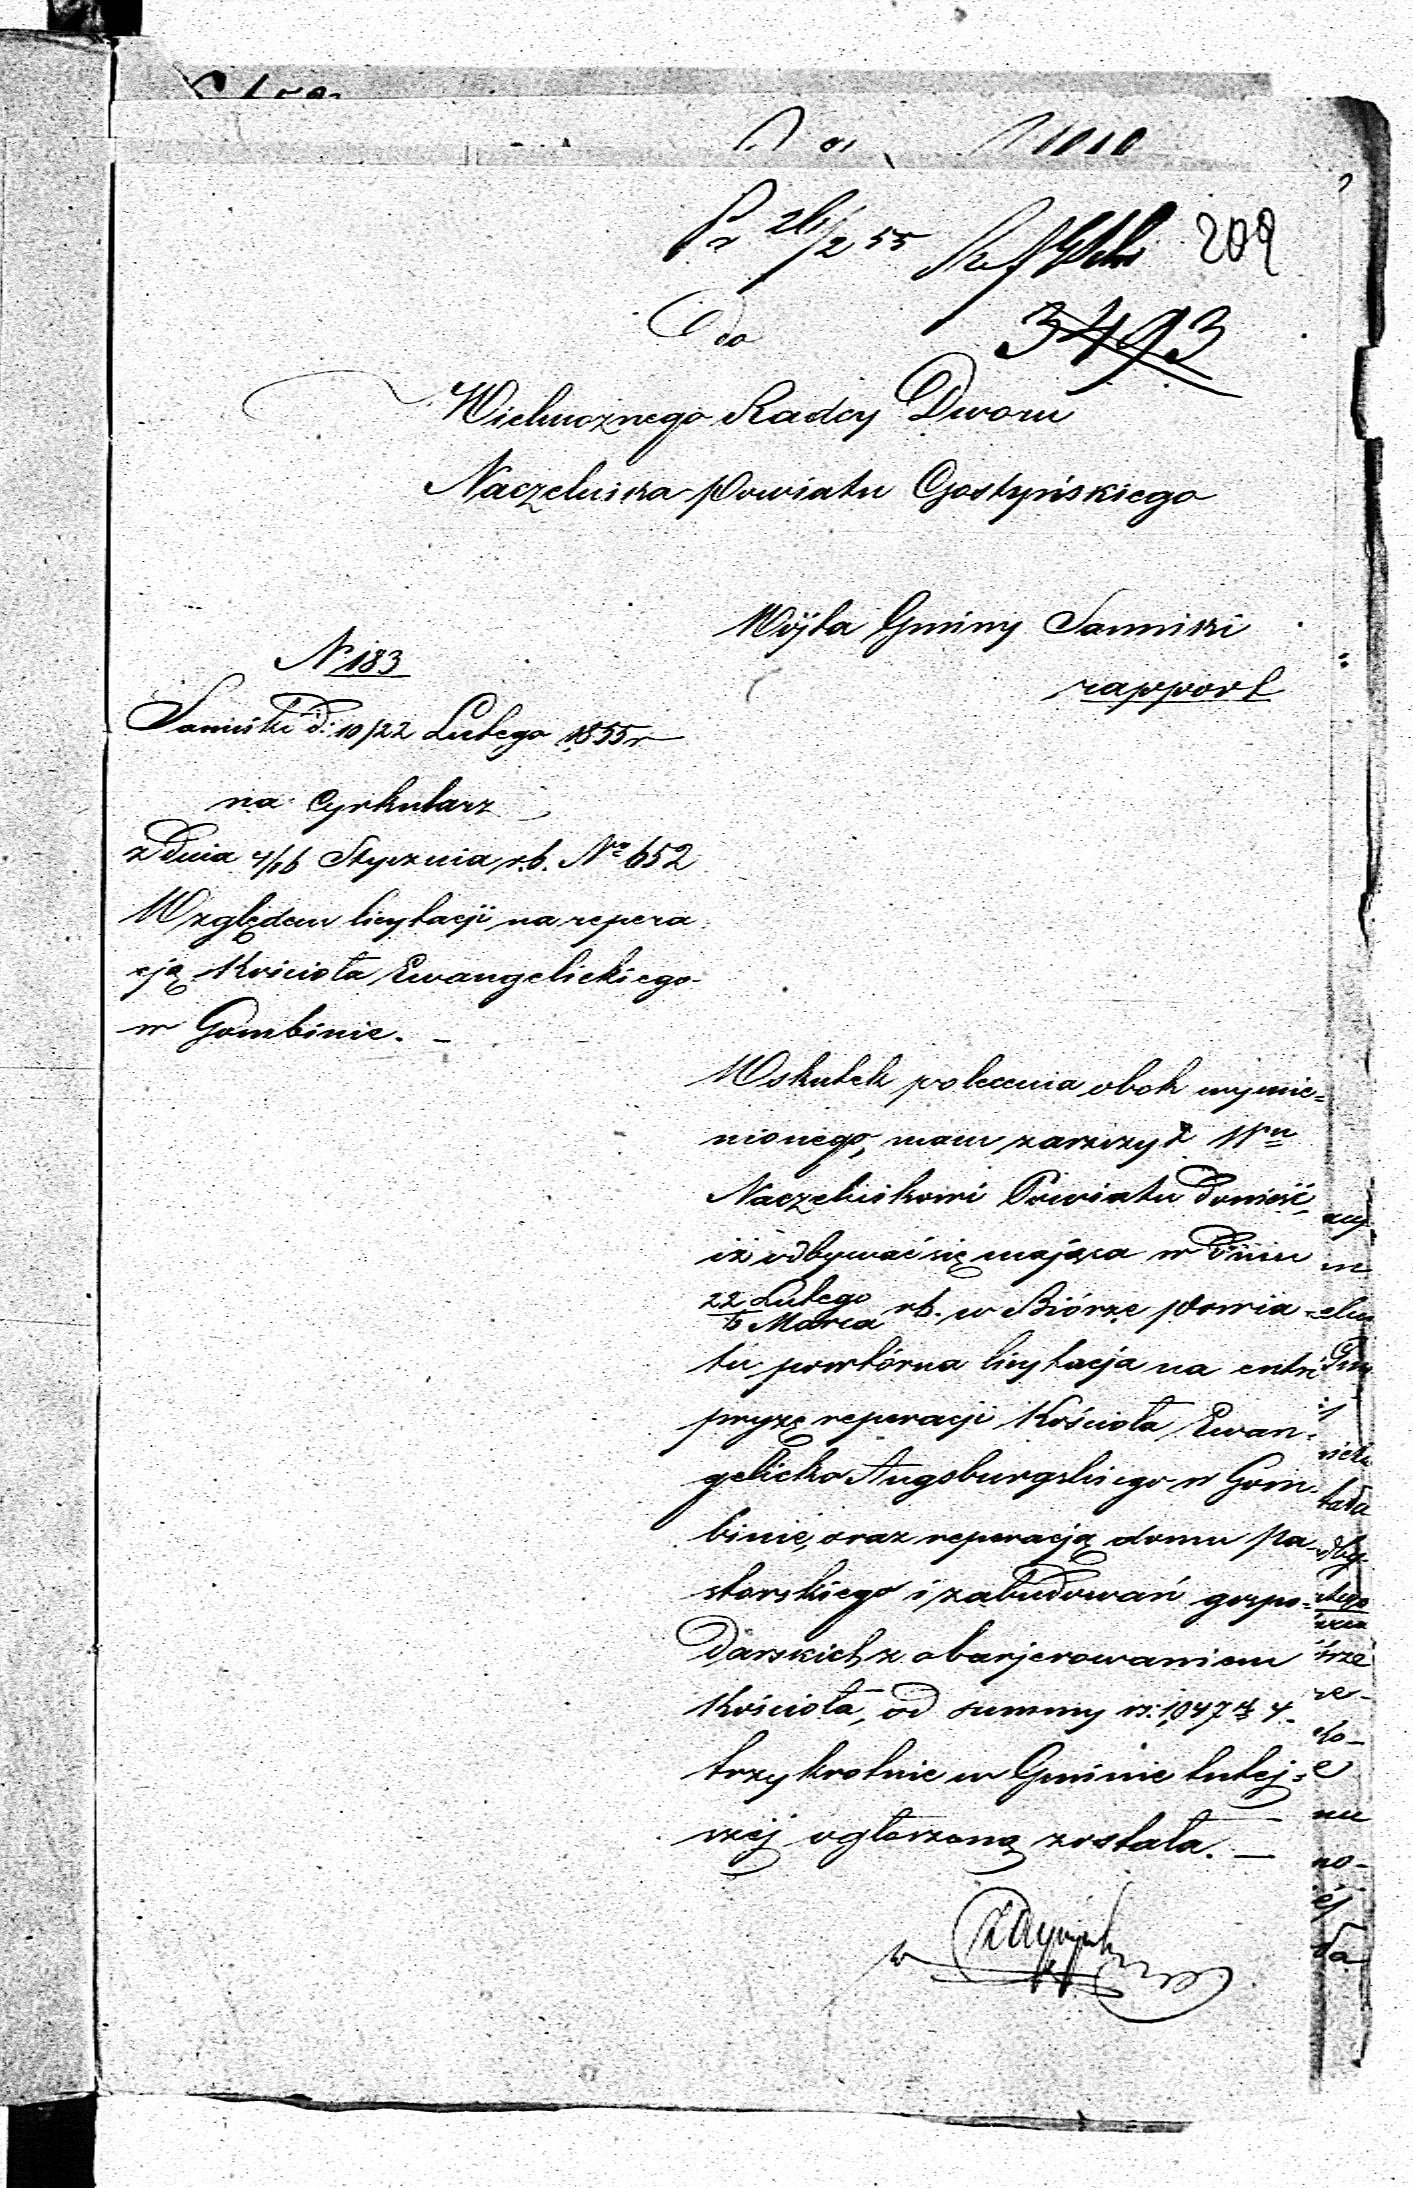 209
Pr 26/2 55
3493
Do
Wielmożnego Radcy Dworu
Naczelnika Powiatu Gostyńskiego
Wójta Gminy Sanniki
rapport
N 183
Sanniki d. 10/22 Lutego 1855 r
na Cyrkularz
z dnia 4/16 Stycznia r.b. No 652
Względem licytacji na repera
cją Kościoła Ewangelickiego
w Gombinie. -
Wskutek polecenia obok wymie=
nionego, mam zaszczyt Wu
Naczelnikowi Powiatu donieść,
iż odbywać się mająca w dniu
22 Lutego
6 Marca rb. w Biórze Powia=
tu powtórna licytacja na entre
pryzę reperacji Kościoła Ewan=
gelicko Augsburgskiego w Gom=
binie, oraz reperacją domu Pa=
storskiego i zabudowań gospo=
darskich z obarjerowaniem
Kościoła, od summy rs. 1047 4
trzykrotnie w Gminie tutej=
szej ogłoszoną została. -